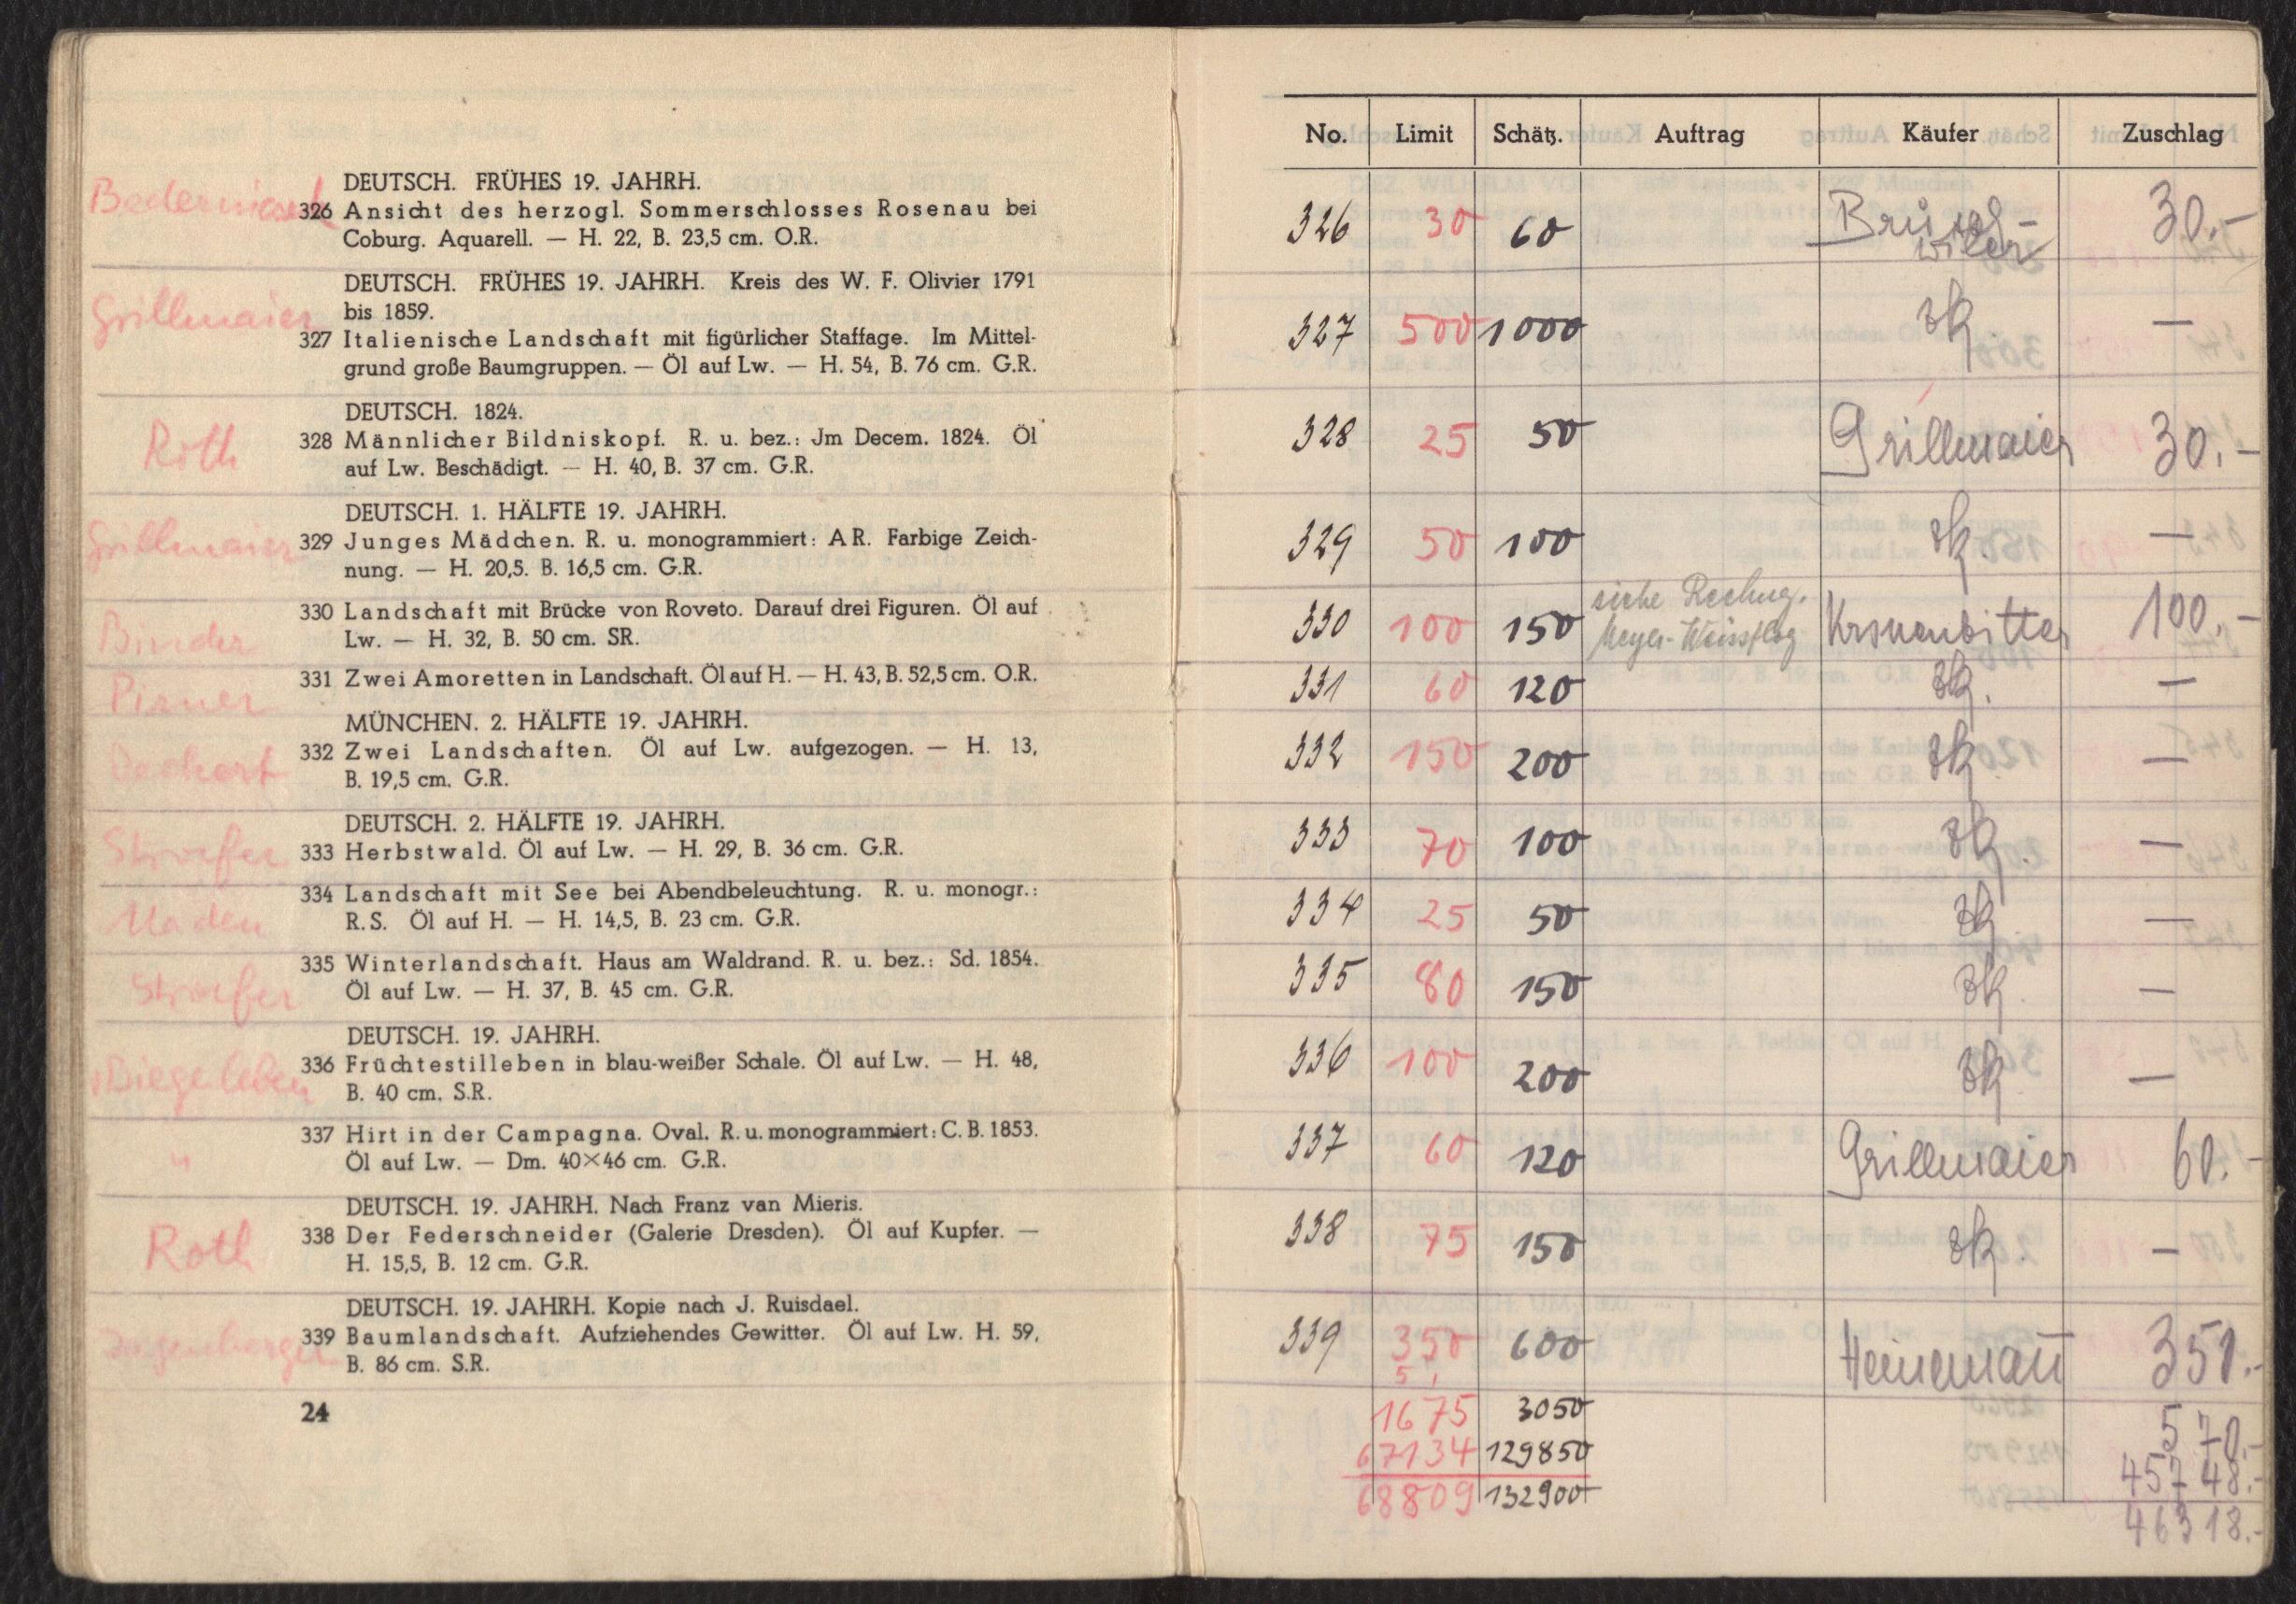 Grillmaier
Roth
Grillmaier
Binder
Pirner
Dechert
Maden
Biegeleben
"
Roth
DEUTSCH. FRÜHES 19. JAHRH.
326 Ansicht des herzogl. Sommerschlosses Rosenau bei
Coburg. Aquarell. — H. 22, B. 23,5 cm. O.R.
DEUTSCH. FRÜHES 19. JAHRH. Kreis des W. F. Olivier 1791
bis 1859.
327 Italienische Landschaft mit figürlicher Staffage. Im Mittel-
grund große Baumgruppen. — Öl auf Lw. — H. 54, B. 76 cm. G.R.
DEUTSCH. 1824.
328 Männlicher Bildniskopf. R. u. bez.: Jm Decem. 1824. Öl
auf Lw. Beschädigt. — H. 40, B. 37 cm. G.R.
DEUTSCH. 1. HÄLFTE 19. JAHRH.
329 Junges Mädchen. R. u. monogrammiert: AR. Farbige Zeich-
nung. — H. 20,5. B. 16,5 cm. G.R.
330 Landschaft mit Brücke von Roveto. Darauf drei Figuren. Öl auf
Lw. — H. 32, B. 50 cm. SR.
331 Zwei Amoretten in Landschaft. Öl auf H. — H. 43, B. 52,5 cm. O.R.
MÜNCHEN. 2. HÄLFTE 19. JAHRH.
332 Zwei Landschaften. Öl auf Lw. aufgezogen. — H. 13,
B. 19,5 cm. G.R.
DEUTSCH. 2. HÄLFTE 19. JAHRH.
333 Herbstwald. Öl auf Lw. — H. 29, B. 36 cm. G.R.
334 Landschaft mit See bei Abendbeleuchtung. R. u. monogr.:
R. S. Öl auf H. — H. 14,5, B. 23 cm. G.R.
335 Winterlandschaft. Haus am Waldrand. R. u. bez.: Sd. 1854.
Öl auf Lw. — H. 37, B. 45 cm. G.R.
DEUTSCH. 19. JAHRH.
336 Früchtestilleben in blau-weißer Schale. Öl auf Lw. — H. 48,
B. 40 cm. S.R.
337 Hirt in der Campagna. Oval. R. u. monogrammiert: C. B. 1853.
Öl auf Lw. — Dm. 40×46 cm. G.R.
DEUTSCH. 19. JAHRH. Nach Franz van Mieris.
338 Der Federschneider (Galerie Dresden). Öl auf Kupfer. —
H. 15,5, B. 12 cm. G.R.
DEUTSCH. 19. JAHRH. Kopie nach J. Ruisdael.
339 Baumlandschaft. Aufziehendes Gewitter. Öl auf Lw. H. 59,
B. 86 cm. S.R.
24
No. Limit Schätz. Auftrag Käufer Zuschlag
326 30 60 30.-
327 500 1000 zk —
328 25 50 Grillmaier 30.-
329 50 100 zk. —
330 100 150 siehe Rechng. Meyer-Weissflog Kronenbitter 100.-
331 60 120 zk. —
332 150 200 zk —
333 70 100 zk. —
334 25 50 zk —
335 80 150 zk. —
336 100 200 zk —
337 60 120 Grillmaier 60.-
338 75 150 zk. —
339 350 600 Heinemann 350.-
1675 3050 570.-
67134 129850 45748.-
68809 132900 46318.-